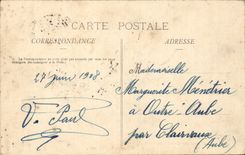 CARTE POSTALE
CORRESPONDANCE
ADRESSE
27 juin 1908
V. Paul
Mademoiselle
Marguerite Ménétrier
à Outre-Aube
par Clairvaux
(Aube)